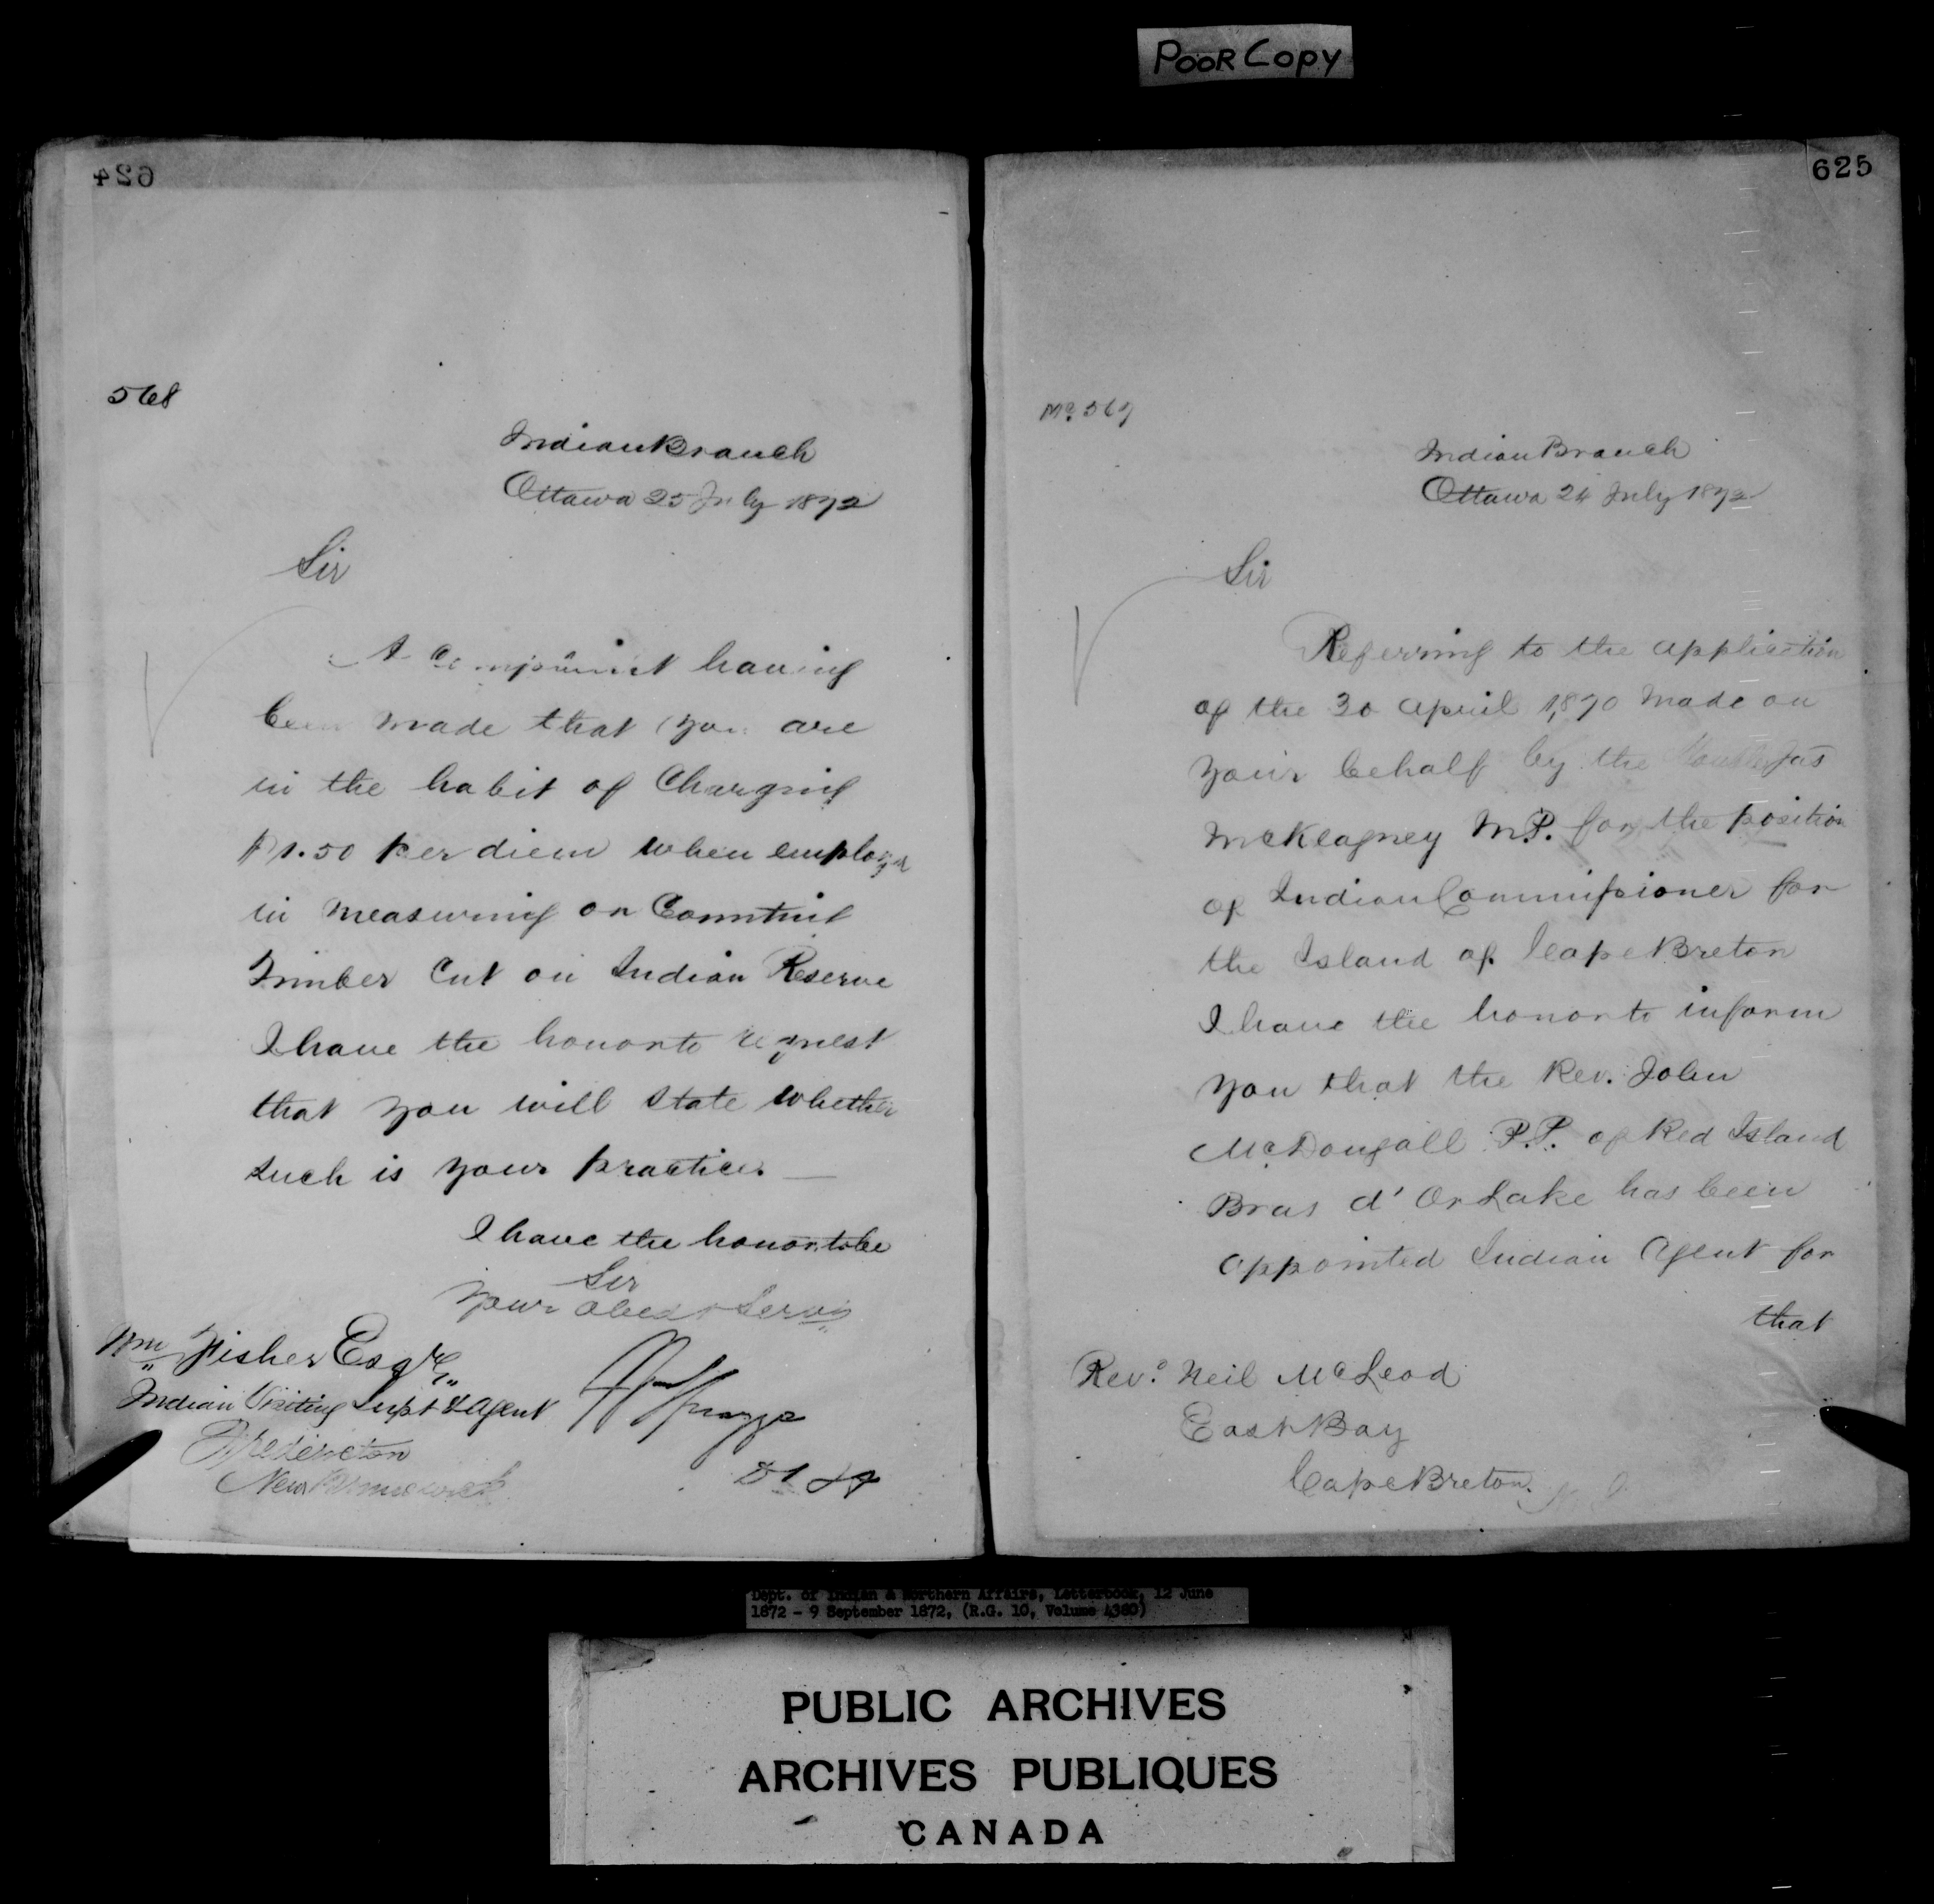 POOR COPY
624
568
Indian Branch
Ottawa 25 July 1872
Sir
A Complaint having
been made that you are
in the habit of Charging
$1.50 per diem when employed
in measuring or Counting
Timber Cut on Indian Reserve
I have the honor to request
that you will state whether
such is your practice. —
I have the honor to be
Sir
Your Obedt Servt
Wm Fisher Esqr,
Indian Visiting Supt & Agent
Fredericton
New Brunswick
625
No. 567
Indian Branch
Ottawa 24 July 1872
Sir
Referring to the application
of the 30 April 1870 made on
your behalf by the Jas
McKeagney M.P. for the position
of Indian Commissioner for
the Island of Cape Breton
I have the honor to inform
you that the Rev. John
McDougall P.P. of Red Island
Bras d'Or Lake has been
appointed Indian Agent for
that
Revd. Neil McLeod
East Bay
Cape Breton.
Dept. of Indian & Northern Affairs, Letterbook, 12 June
1872 - 9 September 1872, (R.G. 10, Volume 4380)
PUBLIC ARCHIVES
ARCHIVES PUBLIQUES
CANADA